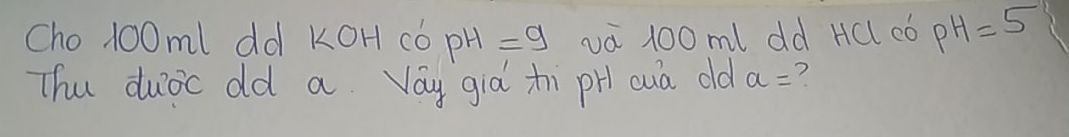 Cho 100ml dd KOH có pH = 9 và 100 ml dd HCl có pH = 5
Thu được dd a. Vậy giá trị pH của dd a = ?